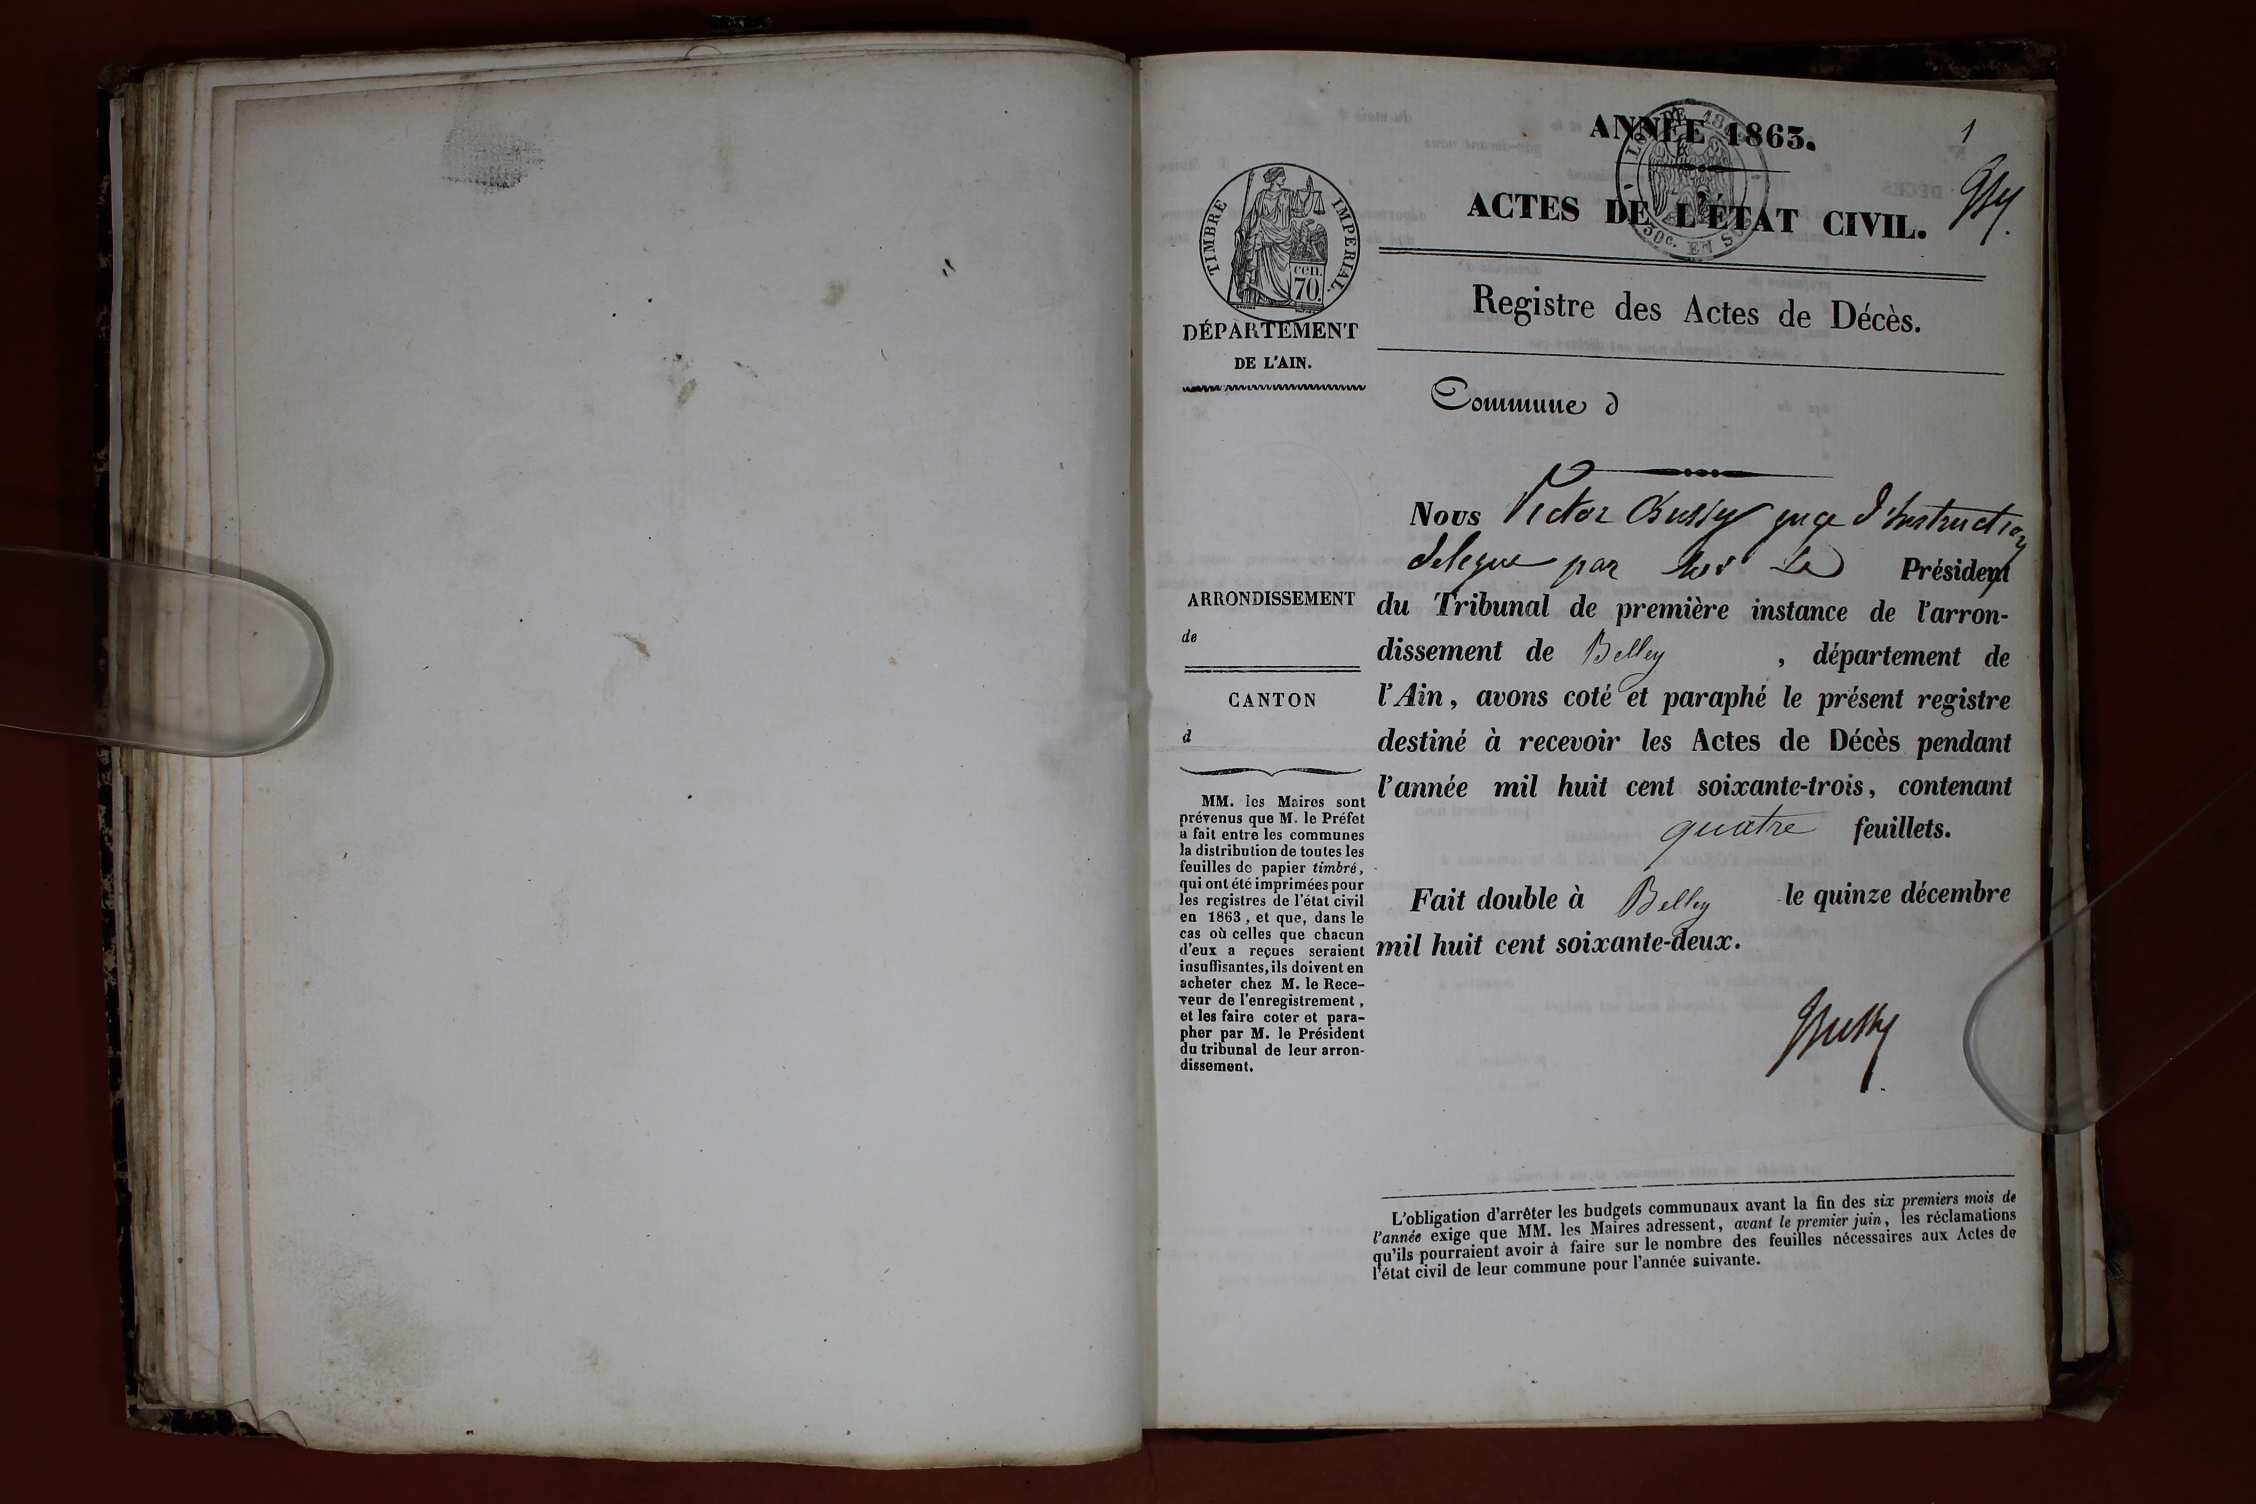 ANNÉE 1863.
1
LOI DE 1862
50c. EN SUS
ACTES DE L'ÉTAT CIVIL.
Registre des Actes de Décès.
Commune d
TIMBRE IMPERIAL.
cen.
70.
DÉPARTEMENT
DE L'AIN.
ARRONDISSEMENT
de
CANTON
d
MM. les Maires sont
prévenus que M. le Préfet
a fait entre les communes
la distribution de toutes les
feuilles de papier timbré,
qui ont été imprimées pour
les registres de l'état civil
en 1863, et que, dans le
cas où celles que chacun
d'eux a reçues seraient
insuffisantes, ils doivent en
acheter chez M. le Rece-
veur de l'enregistrement,
et les faire coter et para-
pher par M. le Président
du tribunal de leur arron-
dissement.
Nous Victor Bussy juge d'Instruction
délégué par le Président
du Tribunal de première instance de l'arron-
dissement de Belley , département de
l'Ain, avons coté et paraphé le présent registre
destiné à recevoir les Actes de Décès pendant
l'année mil huit cent soixante-trois, contenant
quatre feuillets.
Fait double à Belley le quinze décembre
mil huit cent soixante-deux.
Bussy
L'obligation d'arrêter les budgets communaux avant la fin des six premiers mois de
l'année exige que MM. les Maires adressent, avant le premier juin, les réclamations
qu'ils pourraient avoir à faire sur le nombre des feuilles nécessaires aux Actes de
l'état civil de leur commune pour l'année suivante.